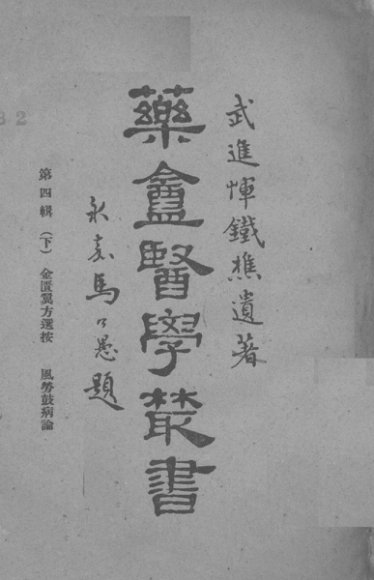 武進惲鐵樵遺著
藥盦醫學叢書
永嘉馬公愚題
第四輯（下） 金匱翼方選按 風勞鼓病論